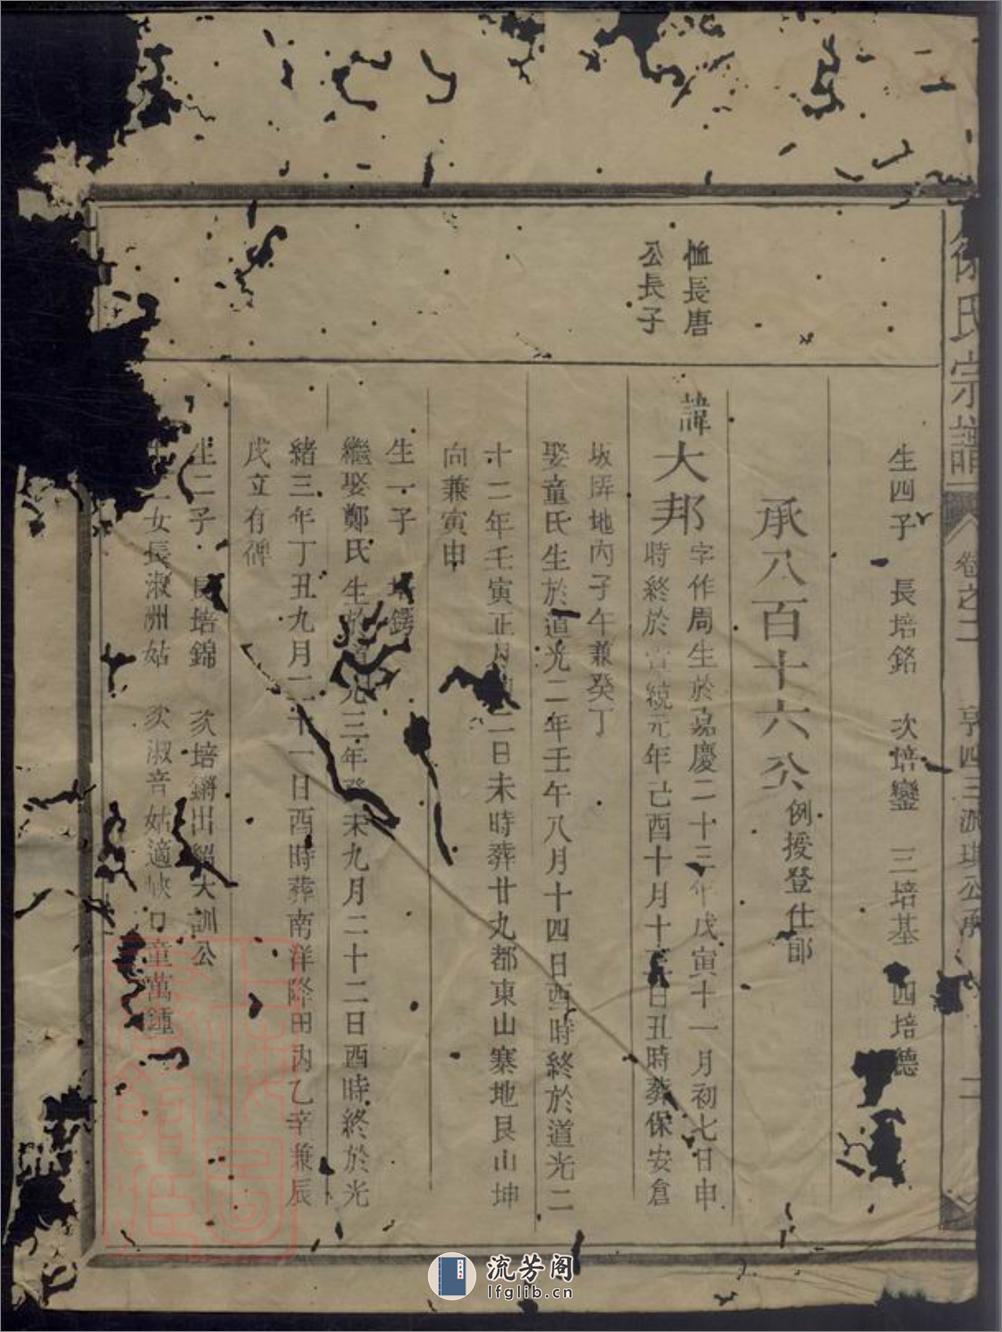 氏宗譜 卷之二 亨四三派琪公房 二
生四子 長培銘 次培鑾 三培基 四培德
承八百十六公 例授登仕郎
恤長唐
公長子
諱大邦 字作周生於嘉慶二十三年戊寅十一月初七日申
時終於宣統元年己酉十月十日丑時葬保安倉
坂塝地內子午兼癸丁
娶童氏生於道光二年壬午八月十四日酉時終於道光二
十二年壬寅正月二日未時葬廿九都東山寨地艮山坤
向兼寅申
生一子 培鐸
繼娶鄭氏生於道光三年癸未九月二十二日酉時終於光
緒三年丁丑九月二十一日酉時葬南洋降田內乙辛兼辰
戌立有碑
生二子 長培錦 次培鏘出紹大訓公
二女長淑洲姑 次淑音姑適缺口童萬鍾
流芳閣
lfglib.cn